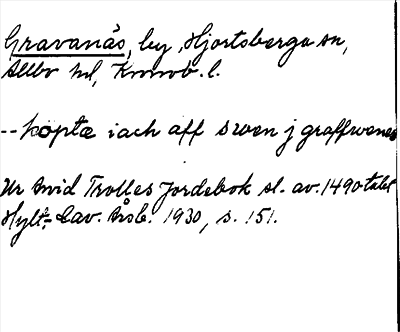 Gravanäs, by, Hjortsberga sn,
Allbo hd, Kronob. l.
-- kopte iach aff swen j graffwenes
Ur Arvid Trolles Jordebok sl. av. 1490-talet
Hylt.-Cav. Årsb. 1930, s. 151.